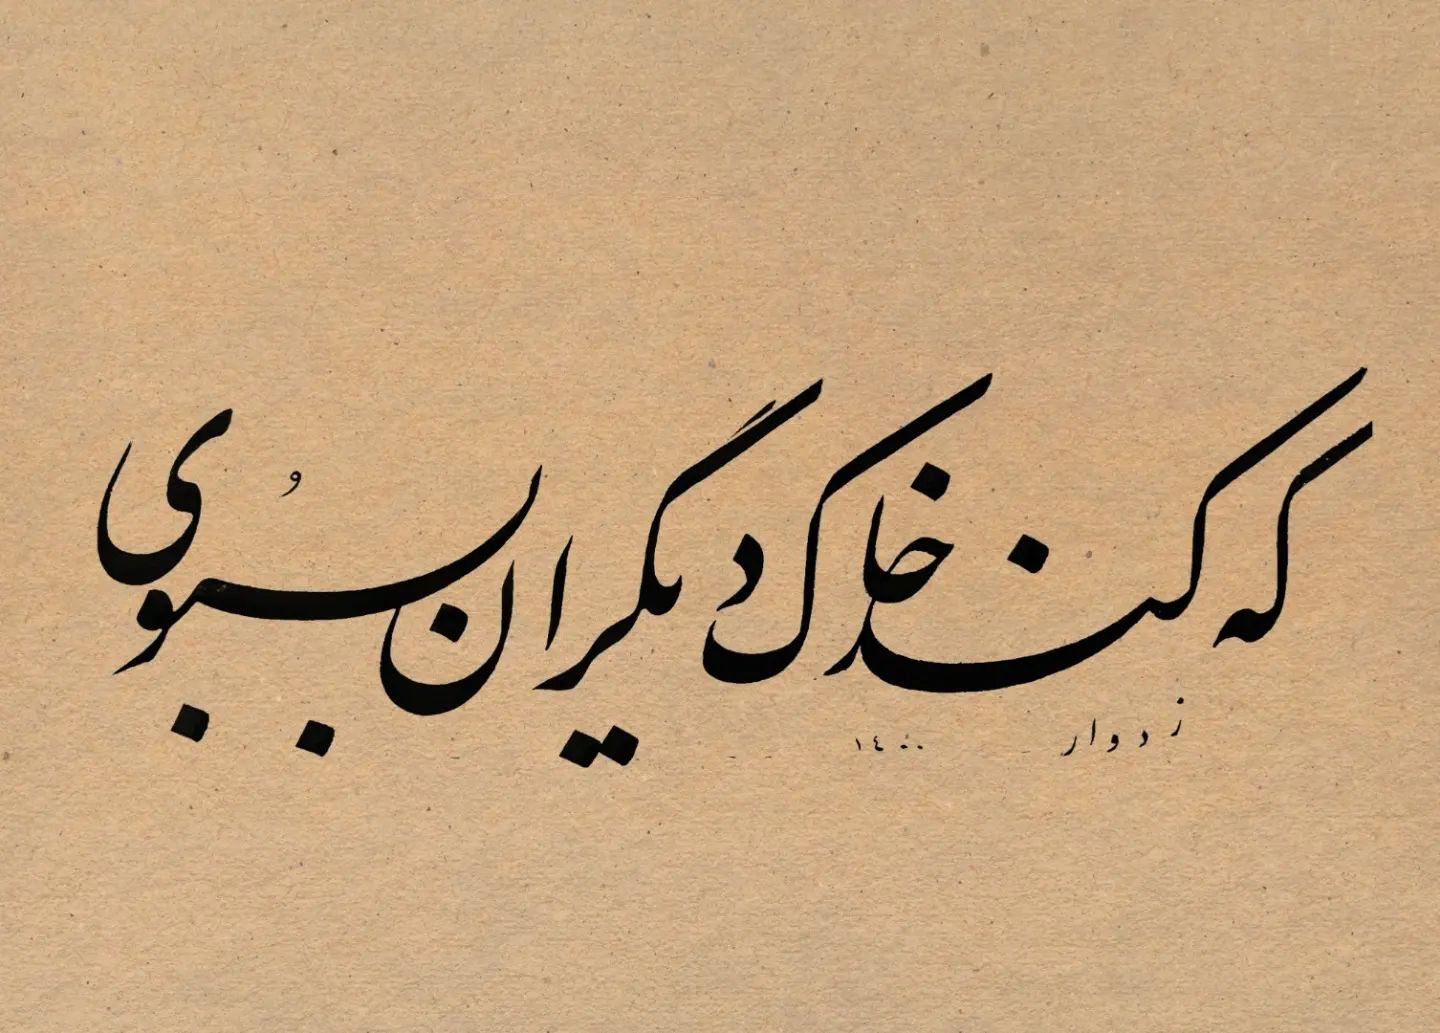 که کند خاک دیگران بسبوی
زدوار ١٤٠٠